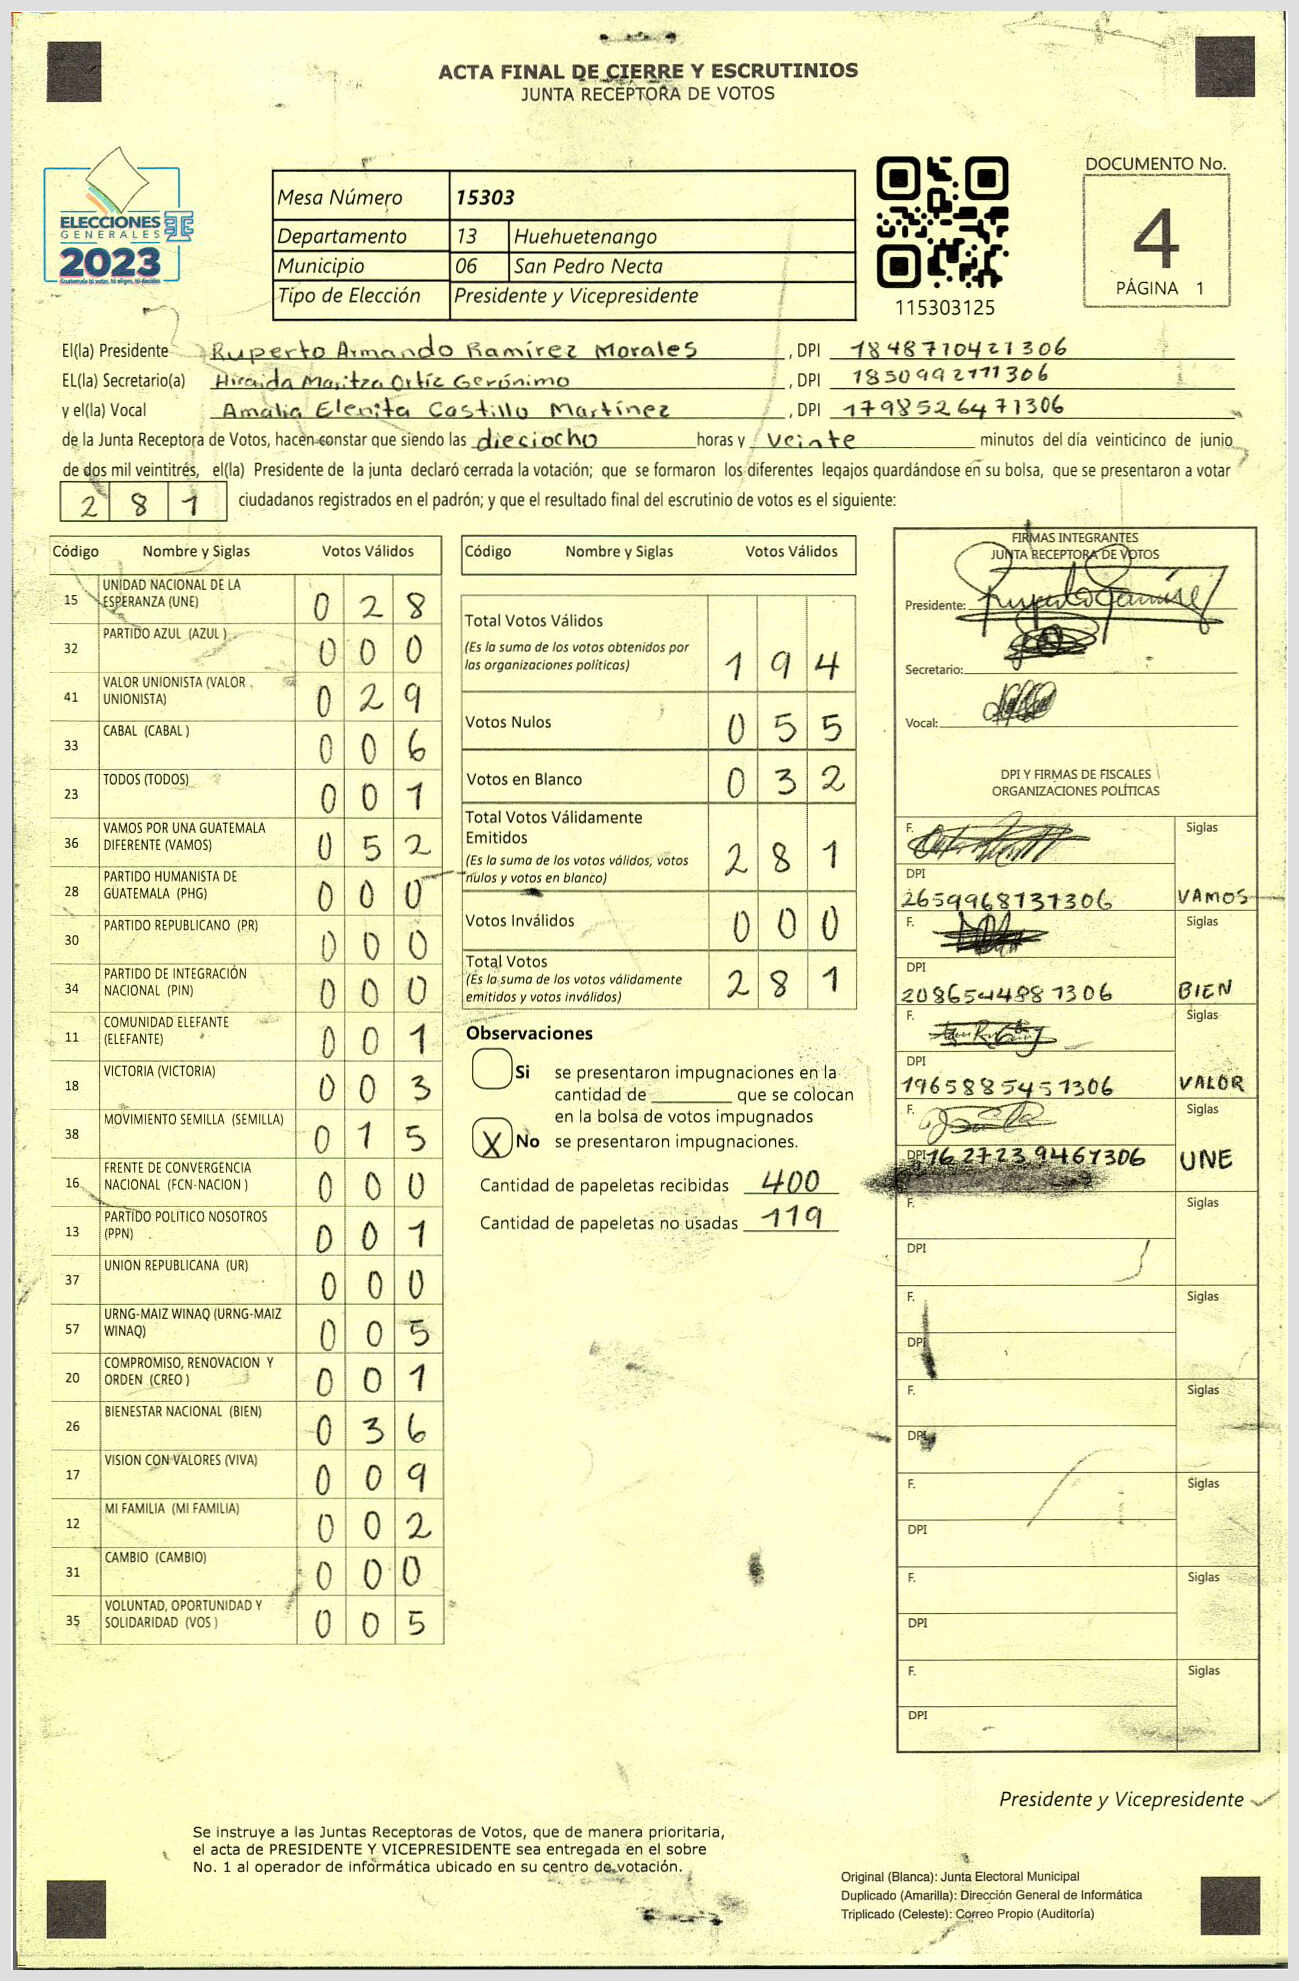 ACTA FINAL DE CIERRE Y ESCRUTINIOS
JUNTA RECEPTORA DE VOTOS
ELECCIONES
GENERALES
2023
Guatemala tú votas, tú eliges, tú decides
Mesa Número 15303
Departamento 13 Huehuetenango
Municipio 06 San Pedro Necta
Tipo de Elección Presidente y Vicepresidente
115303125
DOCUMENTO No.
4
PÁGINA 1
El(la) Presidente Ruperto Armando Ramírez Morales , DPI 1848710421306
EL(la) Secretario(a) Hiraida Maritza Ortíz Gerónimo , DPI 1850992771306
y el(la) Vocal Amalia Elenita Castillo Martínez , DPI 1798526471306
de la Junta Receptora de Votos, hacen constar que siendo las dieciocho horas y veinte minutos del día veinticinco de junio
de dos mil veintitrés, el(la) Presidente de la junta declaró cerrada la votación; que se formaron los diferentes legajos guardándose en su bolsa, que se presentaron a votar
281 ciudadanos registrados en el padrón; y que el resultado final del escrutinio de votos es el siguiente:
Código Nombre y Siglas Votos Válidos
15 UNIDAD NACIONAL DE LA ESPERANZA (UNE) 028
32 PARTIDO AZUL (AZUL ) 000
41 VALOR UNIONISTA (VALOR . UNIONISTA) 029
33 CABAL (CABAL ) 006
23 TODOS (TODOS) 001
36 VAMOS POR UNA GUATEMALA DIFERENTE (VAMOS) 052
28 PARTIDO HUMANISTA DE GUATEMALA (PHG) 000
30 PARTIDO REPUBLICANO (PR) 000
34 PARTIDO DE INTEGRACIÓN NACIONAL (PIN) 000
11 COMUNIDAD ELEFANTE (ELEFANTE) 001
18 VICTORIA (VICTORIA) 003
38 MOVIMIENTO SEMILLA (SEMILLA) 015
16 FRENTE DE CONVERGENCIA NACIONAL (FCN-NACION ) 000
13 PARTIDO POLITICO NOSOTROS (PPN) 001
37 UNION REPUBLICANA (UR) 000
57 URNG-MAIZ WINAQ (URNG-MAIZ WINAQ) 005
20 COMPROMISO, RENOVACION Y ORDEN (CREO ) 001
26 BIENESTAR NACIONAL (BIEN) 036
17 VISION CON VALORES (VIVA) 009
12 MI FAMILIA (MI FAMILIA) 002
31 CAMBIO (CAMBIO) 000
35 VOLUNTAD, OPORTUNIDAD Y SOLIDARIDAD (VOS ) 005
Código Nombre y Siglas Votos Válidos
Total Votos Válidos 194
(Es la suma de los votos obtenidos por
las organizaciones políticas)
Votos Nulos 055
Votos en Blanco 032
Total Votos Válidamente
Emitidos 281
(Es la suma de los votos válidos, votos
nulos y votos en blanco)
Votos Inválidos 000
Total Votos 281
(Es la suma de los votos válidamente
emitidos y votos inválidos)
Observaciones
Si se presentaron impugnaciones en la
cantidad de ________ que se colocan
en la bolsa de votos impugnados
X No se presentaron impugnaciones.
Cantidad de papeletas recibidas 400
Cantidad de papeletas no usadas 119
FIRMAS INTEGRANTES
JUNTA RECEPTORA DE VOTOS
Presidente:
Secretario:
Vocal:
DPI Y FIRMAS DE FISCALES
ORGANIZACIONES POLÍTICAS
F. Siglas
DPI
2659968131306 VAMOS
F. Siglas
DPI
2086544881306 BIEN
F. Siglas
DPI
1965885451306 VALOR
F. Siglas
DPI 1627239461306 UNE
F. Siglas
DPI
F. Siglas
DPI
F. Siglas
DPI
F. Siglas
DPI
F. Siglas
DPI
F. Siglas
DPI
Presidente y Vicepresidente
Se instruye a las Juntas Receptoras de Votos, que de manera prioritaria,
el acta de PRESIDENTE Y VICEPRESIDENTE sea entregada en el sobre
No. 1 al operador de informática ubicado en su centro de votación.
Original (Blanca): Junta Electoral Municipal
Duplicado (Amarilla): Dirección General de Informática
Triplicado (Celeste): Correo Propio (Auditoría)